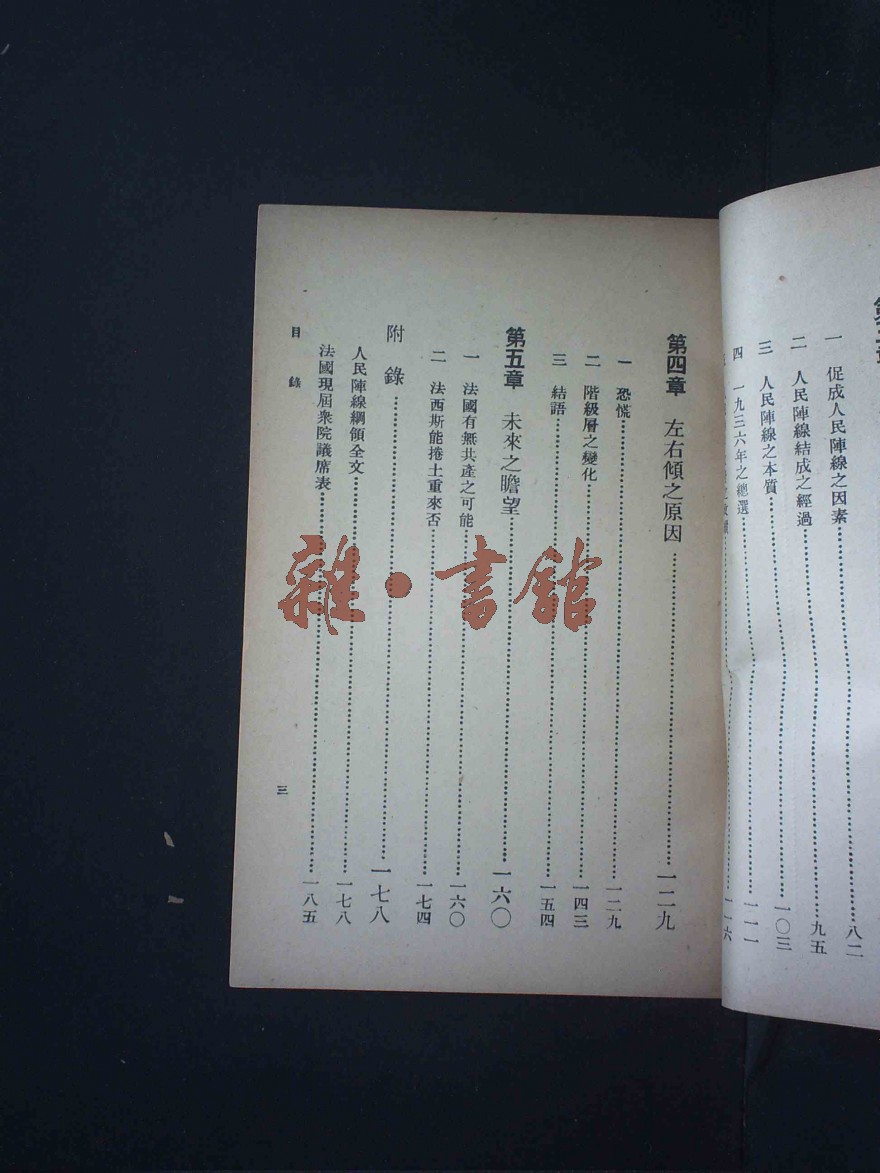 一 促成人民陣線之因素……八二
二 人民陣線結成之經過……九五
三 人民陣線之本質……一〇三
四 一九三六年之總選……一一一
……一一六
第四章 左右傾之原因……一二九
一 恐慌……一二九
二 階級層之變化……一四三
三 結語……一五四
第五章 未來之瞻望……一六〇
一 法國有無共產之可能……一六〇
二 法西斯能捲土重來否……一七四
附錄……一七八
人民陣線綱領全文……一七八
法國現屆衆院議席表……一八五
目錄
三
雜·書館